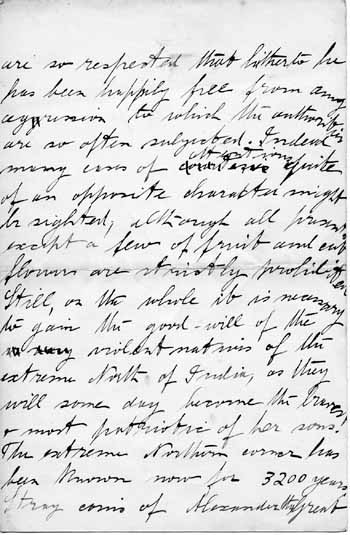 are so respected that hitherto he
has been happily free from any
aggression to which the authorities
are so often subjected. Indeed
many cases of attentions quite
of an opposite character might
be sighted, although all presents
except a few of fruit and cut
flowers are strictly prohibited
Still, on the whole it is necessary
to gain the good-will of the
violent natives of the
extreme North of India, as they
will some day become the bravest
& most patriotic of her sons.
The extreme Northern corner has
been known now for 3200 years
Stray coins of Alexander the Great